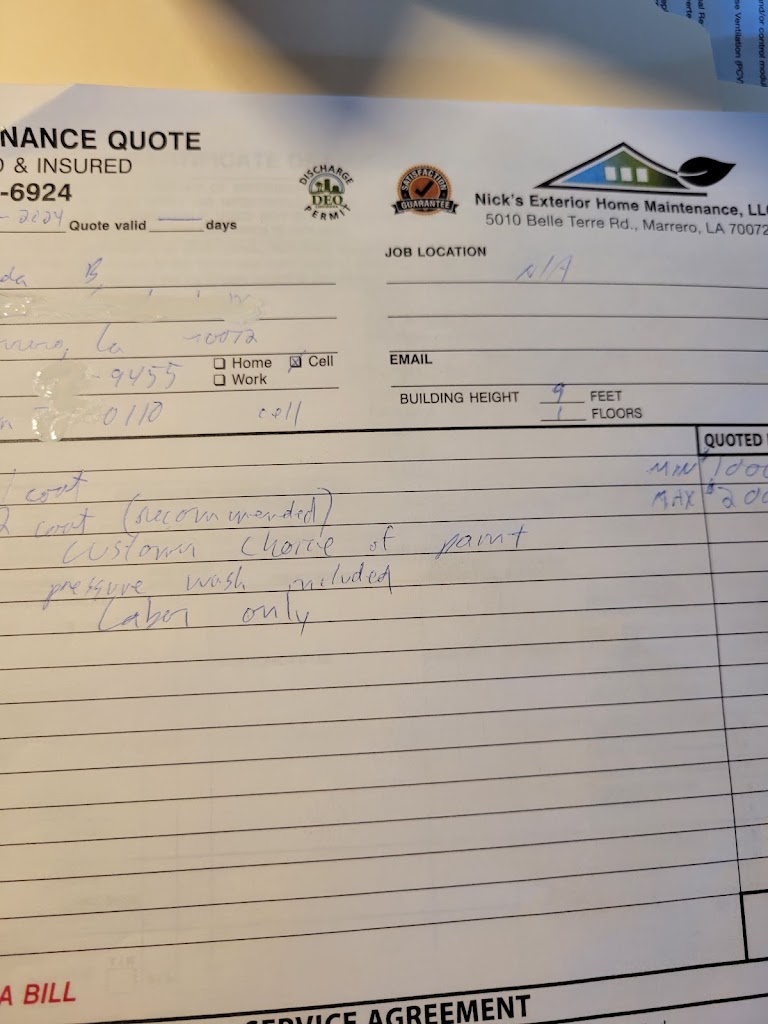 NANCE QUOTE
& INSURED
-6924
- 2024 Quote valid — days
DISCHARGE
DEQ
PERMIT
SATISFACTION
GUARANTEE
Nick's Exterior Home Maintenance, LLC
5010 Belle Terre Rd., Marrero, LA 70072
JOB LOCATION
N/A
da B,
La 70072
-9455
Home
Cell
Work
0110 cell
EMAIL
BUILDING HEIGHT 9 FEET
1 FLOORS
QUOTED
1 coat
MIN $100
2 coat (recommended)
MAX $200
custom choice of paint
pressure wash included
Labor only
A BILL
SERVICE AGREEMENT